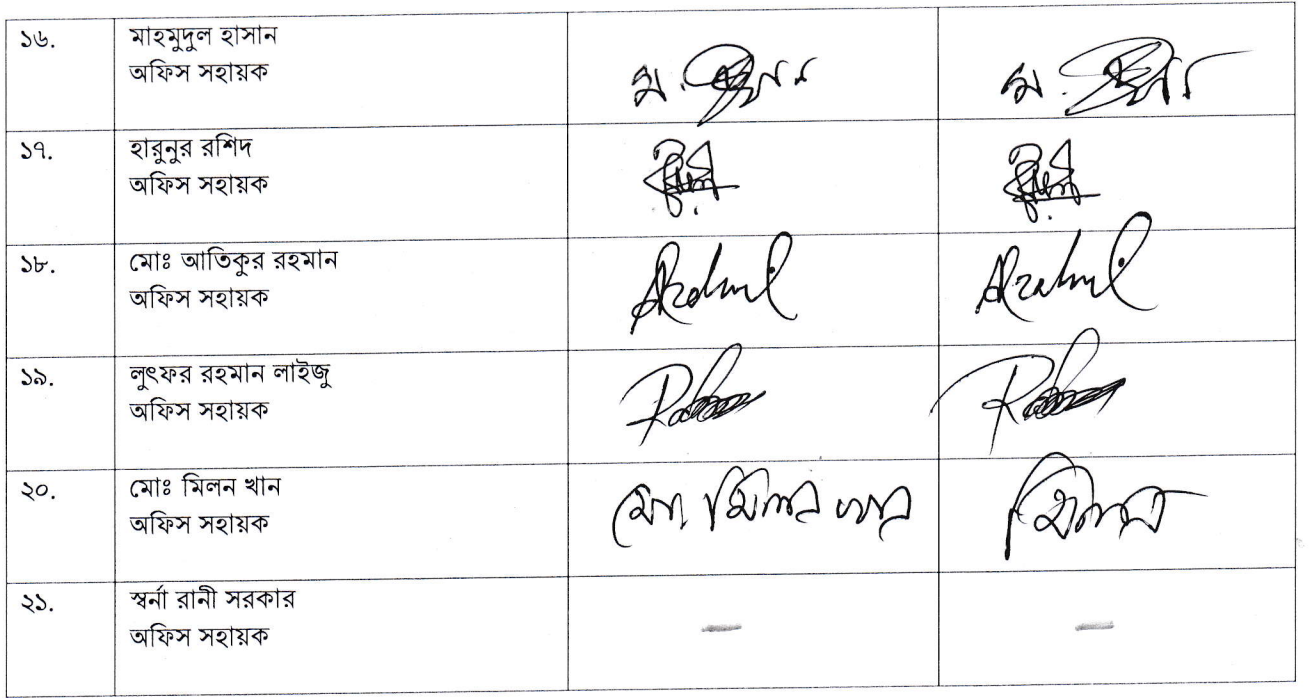 ১৬. মাহমুদুল হাসান
অফিস সহায়ক
১৭. হারুনুর রশিদ
অফিস সহায়ক
১৮. মোঃ আতিকুর রহমান
অফিস সহায়ক
১৯. লুৎফর রহমান লাইজু
অফিস সহায়ক
২০. মোঃ মিলন খান
অফিস সহায়ক
মোঃ মিলন খান মিলন
২১. স্বর্না রানী সরকার
অফিস সহায়ক